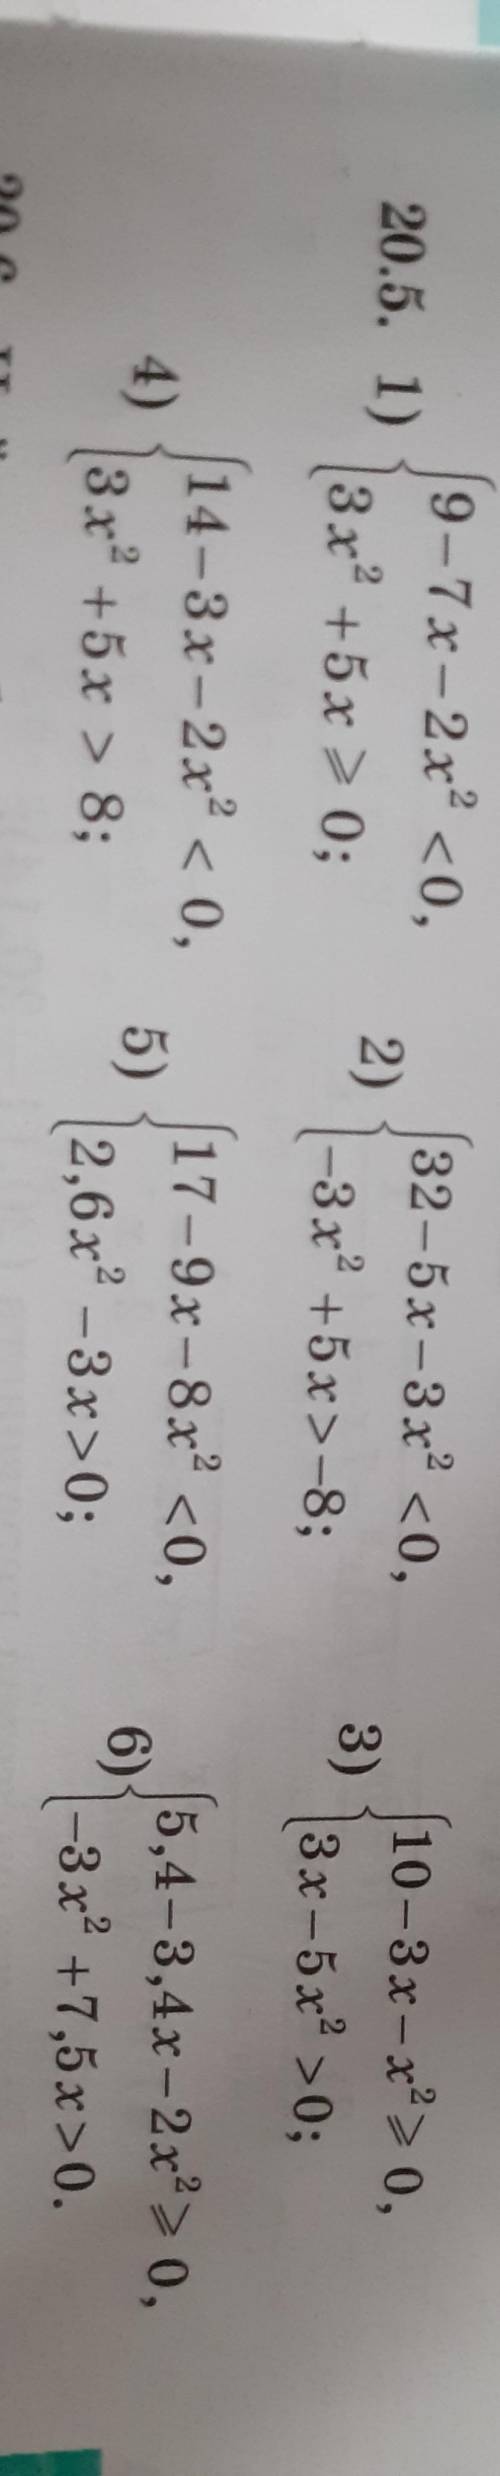 20.5. 1) {9−7x−2x²<0, 3x²+5x⩾0; 2) {32−5x−3x²<0, −3x²+5x>−8; 3) {10−3x−x²⩾0, 3x−5x²>0;
4) {14−3x−2x²<0, 3x²+5x>8; 5) {17−9x−8x²<0, 2,6x²−3x>0; 6) {5,4−3,4x−2x²⩾0, −3x²+7,5x>0.